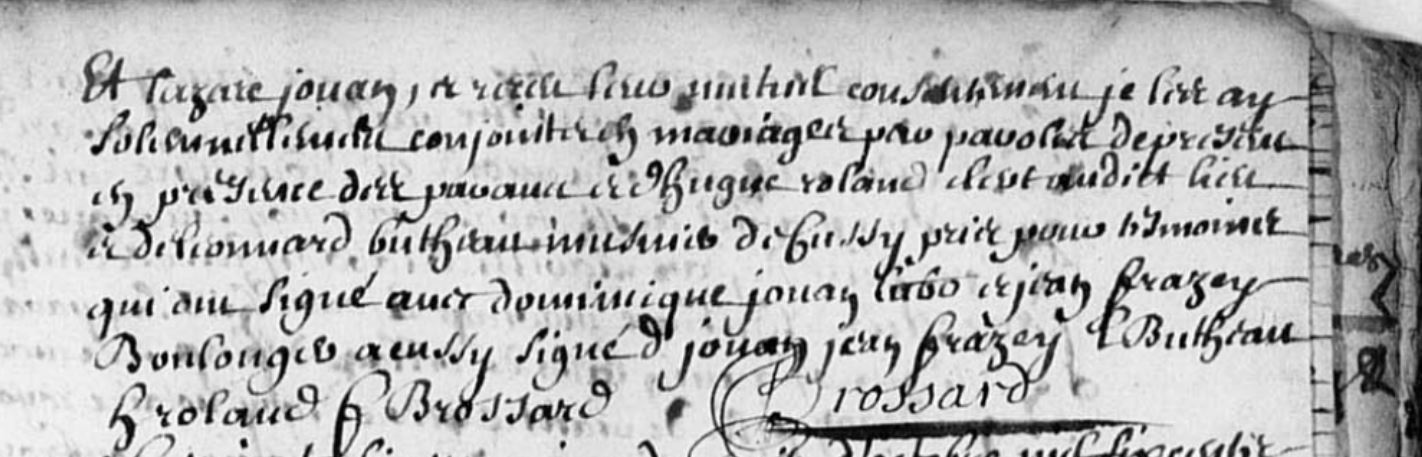 Et lazare jouan, et receu leur mutuel consentement je les ay
solennellement conjoints en mariage par parolles de present
en presence des parans et d'hugue roland clerc audict lieu
et de leonnard butheau musnié de Cussy pris pour tesmoins
qui ont signé avec dominique jouan labo et jean frazey
Boulonger aussy signé d jouan jean frazey L Butheau
h roland f Brossard Brossard